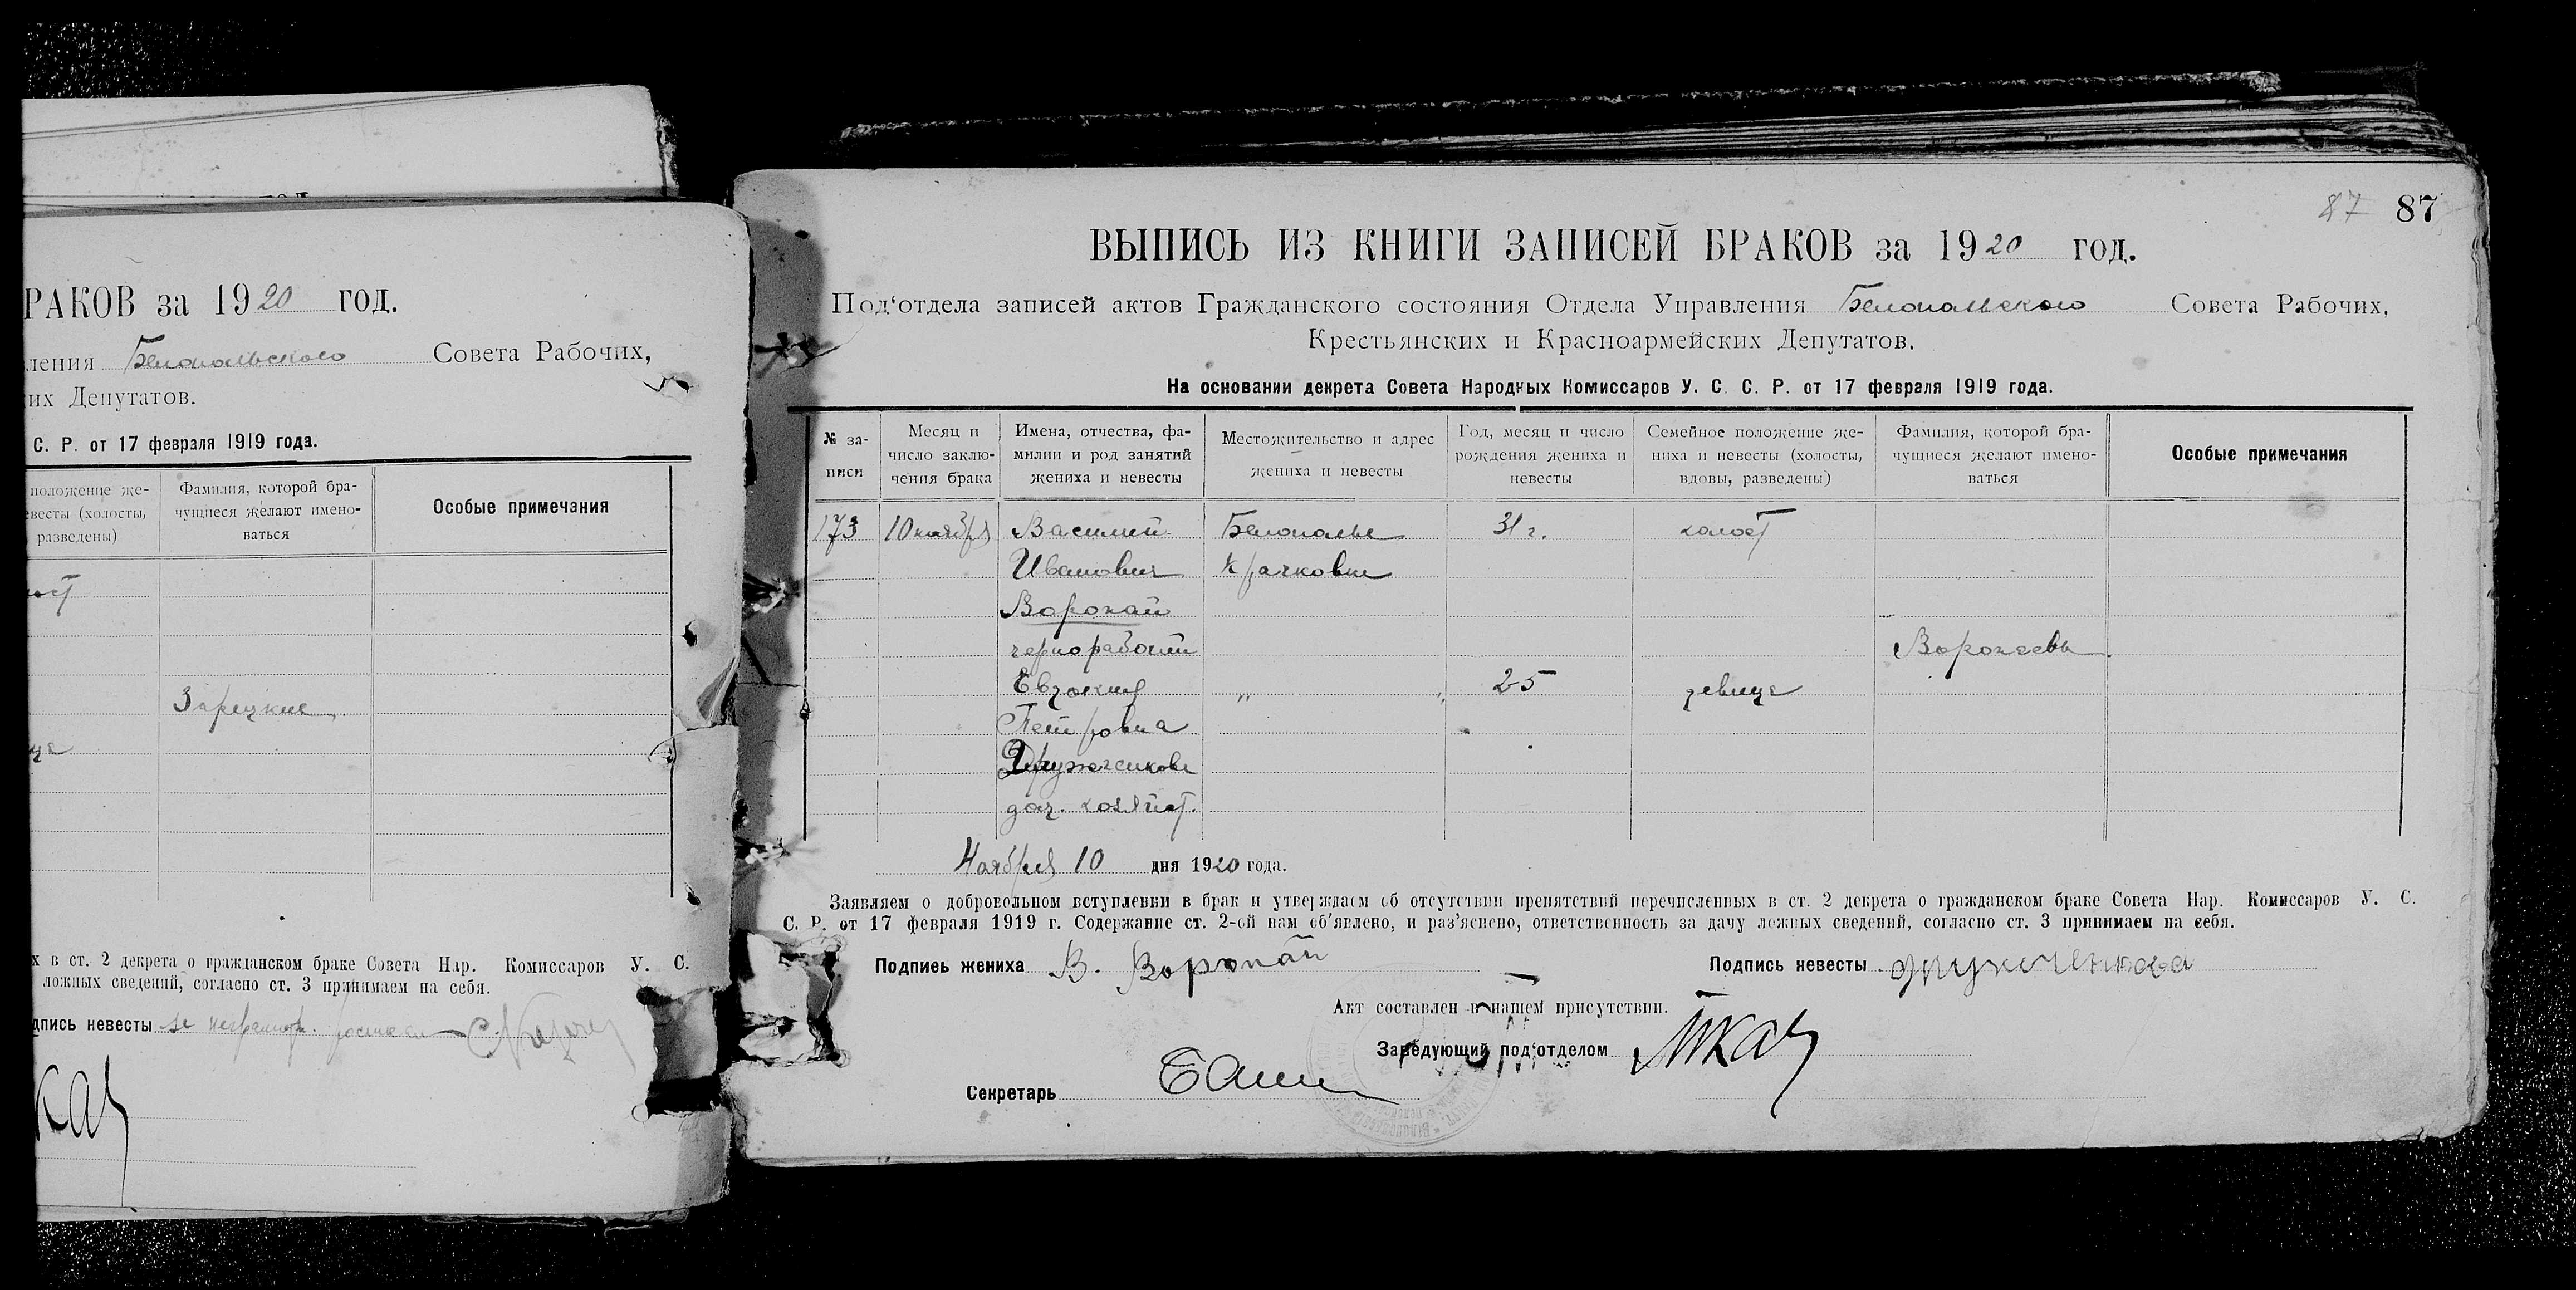 РАКОВ за 1920 год.
ления Белопольского Совета Рабочих,
их Депутатов.
С. Р. от 17 февраля 1919 года.
положение же-
евесты (холосты,
разведены)
Фамилия, которой бра-
чущиеся желают имено-
ваться
Особые примечания
Зарецкие
х в ст. 2 декрета о гражданском браке Совета Нар. Комиссаров У. С.
ложных сведений, согласно ст. 3 принимаем на себя.
дпись невесты за неграмот.
87 87
ВЫПИСЬ ИЗ КНИГИ ЗАПИСЕЙ БРАКОВ за 1920 год.
Под'отдела записей актов Гражданского состояния Отдела Управления Белопольского Совета Рабочих,
Крестьянских и Красноармейских Депутатов.
На основании декрета Совета Народных Комиссаров У. С. С. Р. от 17 февраля 1919 года.
№ за-
писи
Месяц и
число заклю-
чения брака
Имена, отчества, фа-
милии и род занятий
жениха и невесты
Местожительство и адрес
жениха и невесты
Год, месяц и число
рождения жениха и
невесты
Семейное положение же-
ниха и невесты (холосты,
вдовы, разведены)
Фамилия, которой бра-
чущиеся желают имено-
ваться
Особые примечания
173 10 ноября Василий Белополье 31 г. холост
Иванович Крачковка
Воропай
чернорабочий Воропаевы
Евдокия " " 25 девица
Петровна
Дружченкова
дом. хозяйст.
Ноября 10 дня 1920 года.
Заявляем о добровольном вступлении в брак и утверждаем об отсутствии препятствий перечисленных в ст. 2 декрета о гражданском браке Совета Нар. Комиссаров У. С.
С. Р. от 17 февраля 1919 г. Содержание ст. 2-ой нам об'явлено, и раз'яснено, ответственность за дачу ложных сведений, согласно ст. 3 принимаем на себя.
Подпись жениха В. Воропай Подпись невесты Дружченкова
Акт составлен в нашем присутствии.
Заведующий под'отделом Ткач
Секретарь